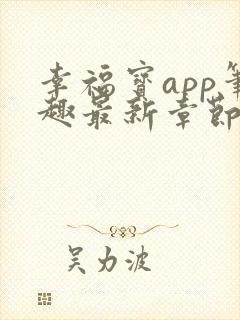 幸福宝app笔
趣最新章节
吴力波